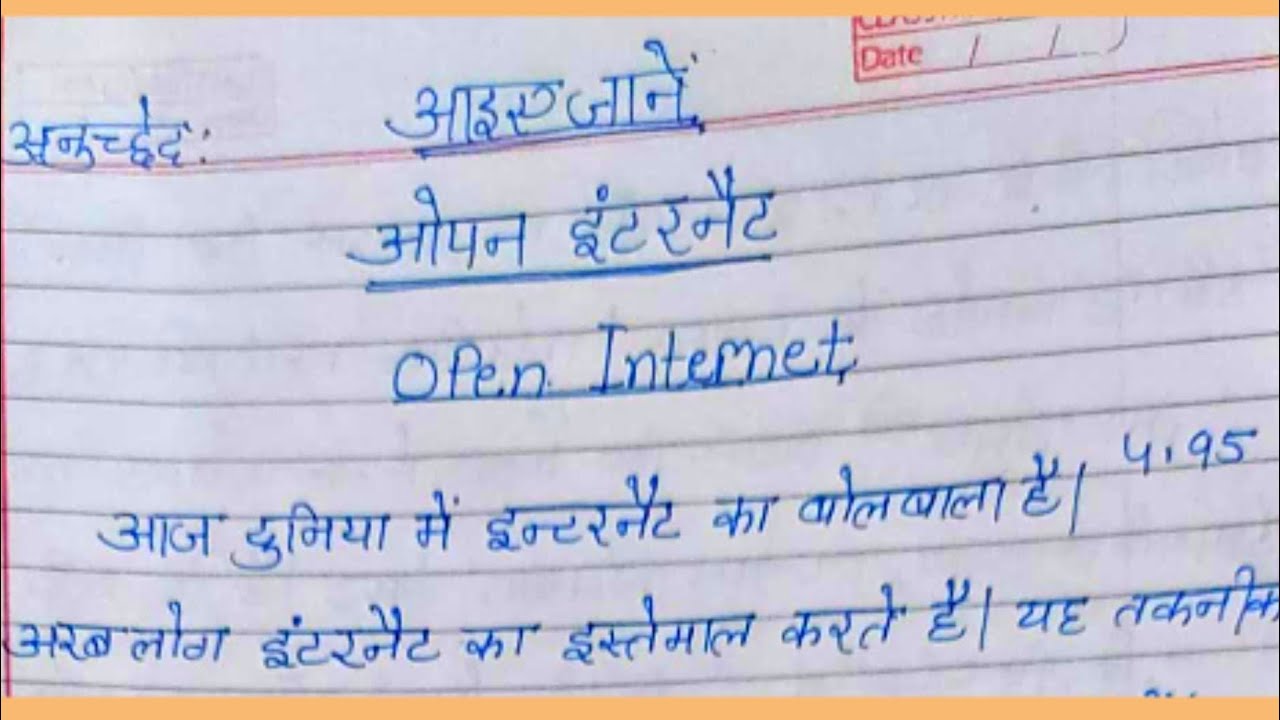 Date / /
अनुच्छेद: आइए जानें
ओपन इंटरनैट
Open Internet
आज दुनिया में इन्टरनैट का बोलबाला है। 4.95
अरब लोग इंटरनैट का इस्तेमाल करते है। यह तकनीक